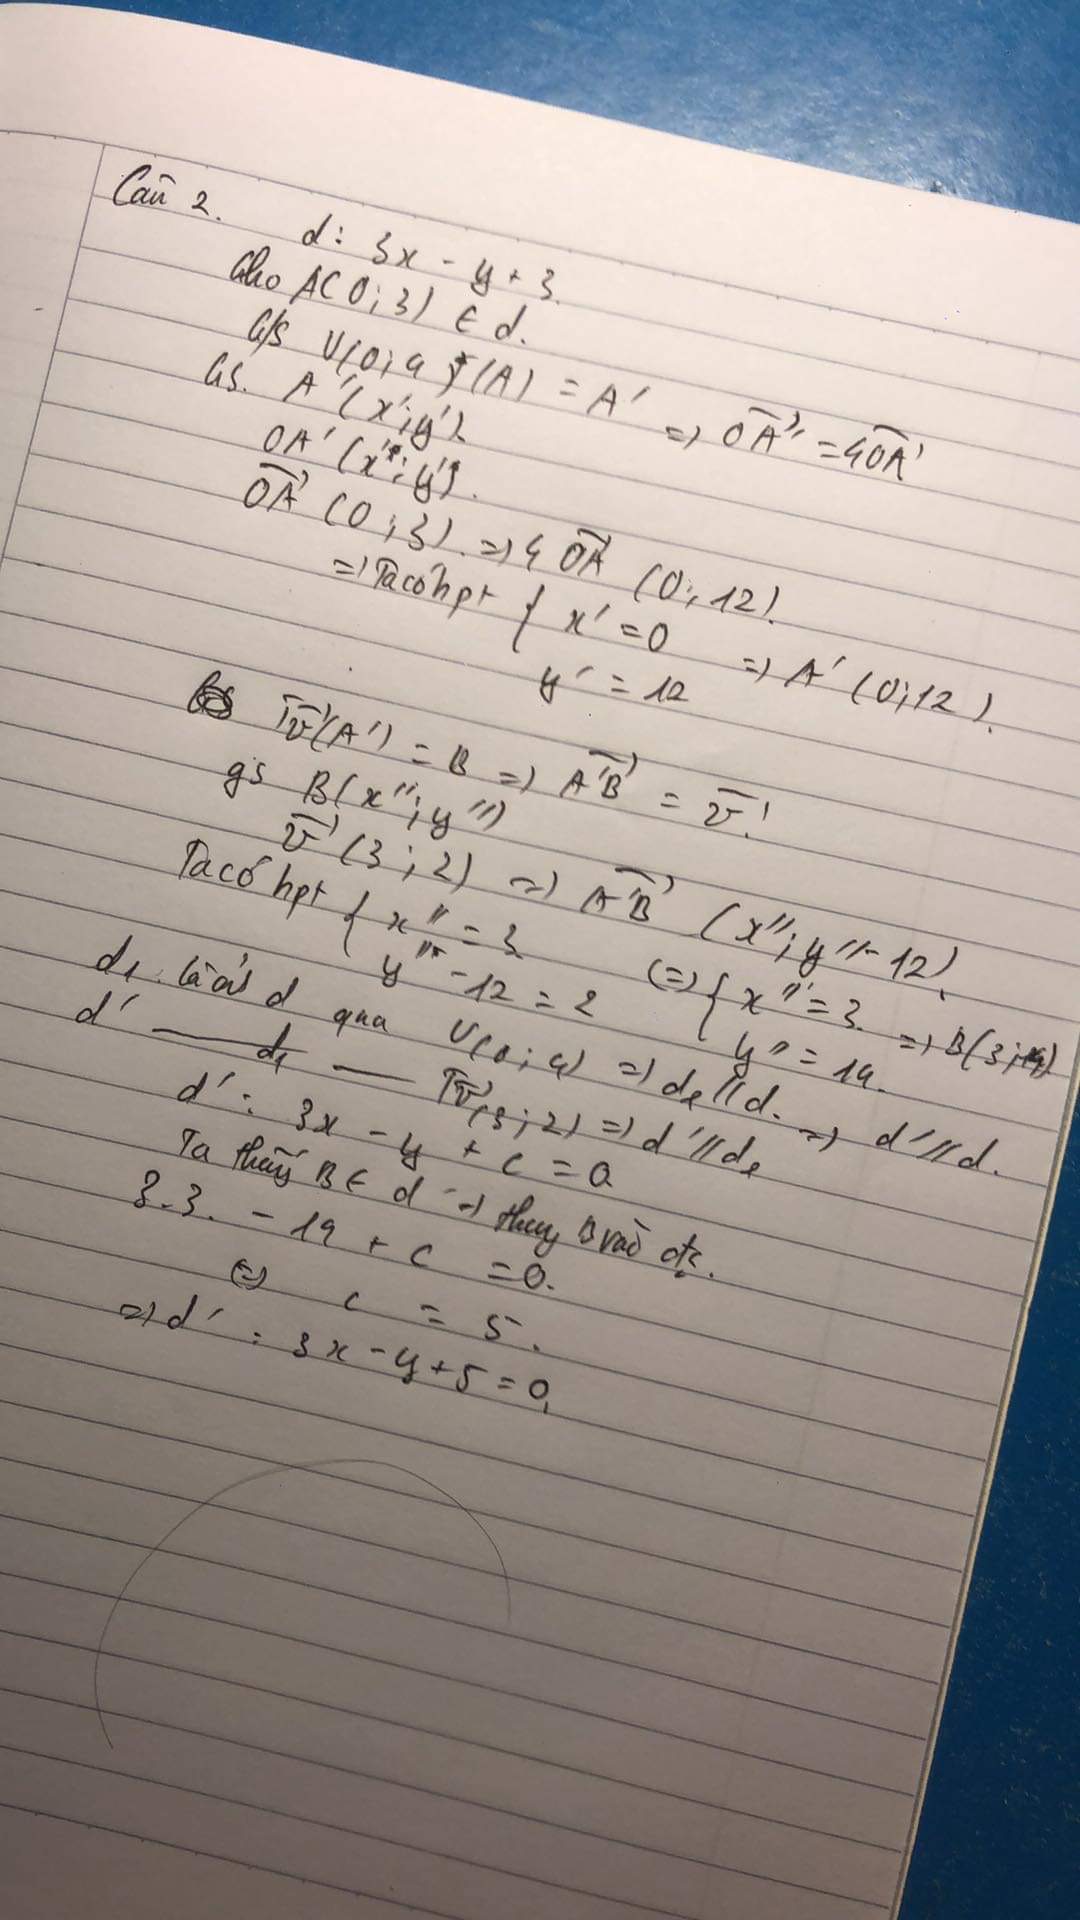 Câu 2.
d: 3x - y + 3.
Cho A(0; 3) ∈ d.
G/s V(0; 4)(A) = A' => OA' = 4OA
Gs. A'(x'; y').
OA'(x'; y').
OA (0; 3). => 4 OA (0; 12).
=> Ta có hpt { x' = 0
y' = 12 => A' (0; 12).
Tv(A') = B => A'B = v.
gs B(x''; y'')
v (3; 2) => A'B (x''; y'' - 12).
Ta có hpt { x'' = 3
y'' - 12 = 2 <=> { x'' = 3
y'' = 14. => B(3; 14)
d1 là ảnh d qua V(0; 4) => d1 // d.
d' — d1 — Tv(3; 2) => d' // d1 => d' // d.
d': 3x - y + c = 0
Ta thấy B ∈ d' => thay B vào đc.
3.3. - 14 + c = 0.
<=> c = 5.
=> d': 3x - y + 5 = 0.